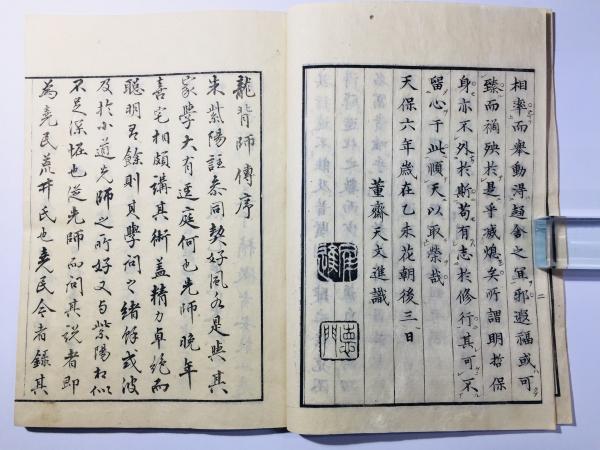 相率而舉動得趨舍之宜邪遐福或可
臻而禍殃於是乎減熄矣所謂明哲保
身亦不外於斯苟有志於修行其可不
留心于此順天以取榮哉
天保六年歲在乙未花朝後三日
董齋天文進識
龍背師傳序
朱紫陽註参同契好風水是與其
家學大有逕庭何也先師晚年
喜宅相頗講其術蓋精力卓絶而
聰明君餘則其學問之緒餘或波
及於小道先師之所好又与紫陽相似
不足深恠也從先師而問其説者即
為堯民荒井氏也堯民今者録其